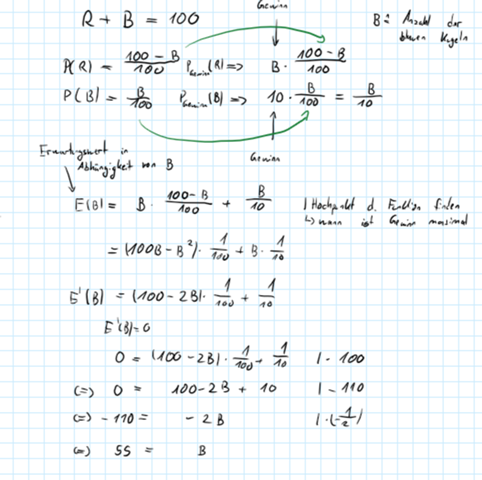 Gewinn
R + B = 100
B ≙ Anzahl der blauen Kugeln
P(R) = \frac{100 - B}{100} P_{Gewinn}(R) => B · \frac{100 - B}{100}
P(B) = \frac{B}{100} P_{Gewinn}(B) => 10 · \frac{B}{100} = \frac{B}{10}
Gewinn
Erwartungswert in
Abhängigkeit von B
E(B) = B · \frac{100 - B}{100} + \frac{B}{10} | Hochpunkt d. Funktion finden
↳ wann ist Gewinn maximal
= (100B - B²) · \frac{1}{100} + B · \frac{1}{10}
E'(B) = (100 - 2B) · \frac{1}{100} + \frac{1}{10}
E'(B) = 0
0 = (100 - 2B) · \frac{1}{100} + \frac{1}{10} | · 100
(=) 0 = 100 - 2B + 10 | - 110
(=) - 110 = - 2B | · (-\frac{1}{2})
(=) 55 = B